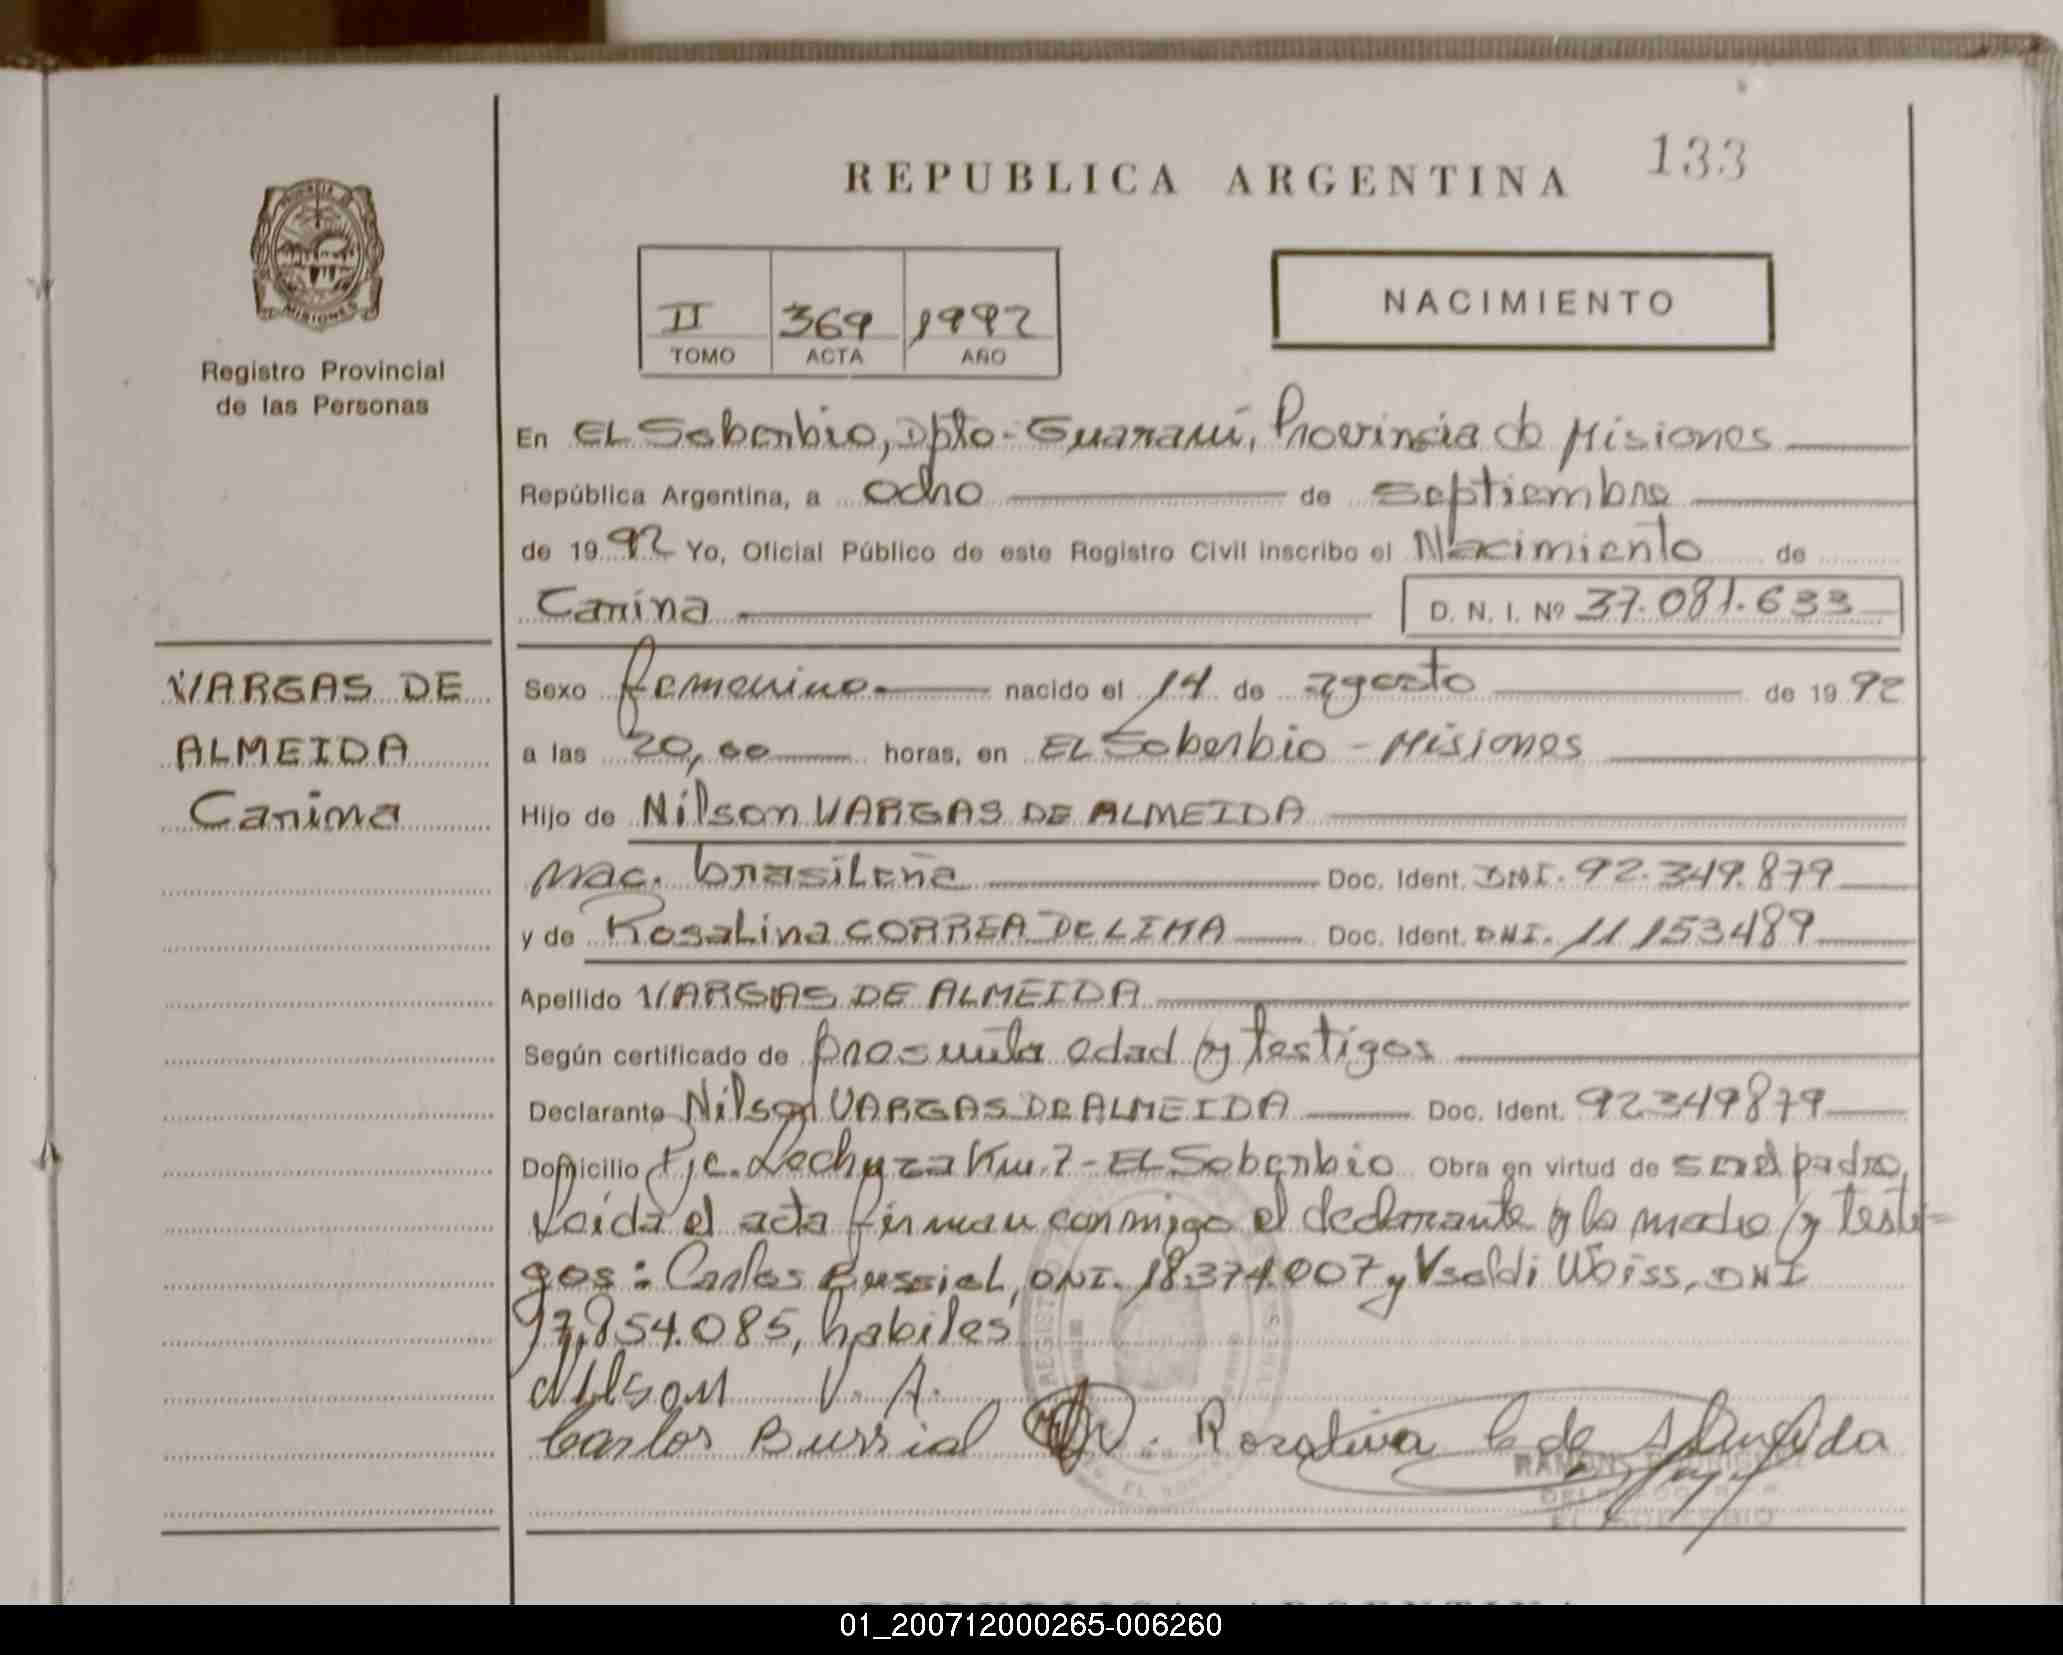 133
REPUBLICA ARGENTINA
MISIONES
Registro Provincial
de las Personas
II 369 1992
TOMO ACTA AÑO
NACIMIENTO
En EL Soberbio, Dpto-Guaraní, Provincia de Misiones
República Argentina, a ocho de septiembre
de 1992 Yo, Oficial Público de este Registro Civil inscribo el Nacimiento de
Carina D. N. I. Nº 37.081.633
VARGAS DE
ALMEIDA
Carina
Sexo femenino nacido el 14 de agosto de 1992
a las 20,00 horas, en EL Soberbio - Misiones
Hijo de Nilson VARGAS DE ALMEIDA
nac. brasileña Doc. Ident. DNI. 92.349.879
y de Rosalina CORREA DE LIMA Doc. Ident. DNI. 11153489
Apellido VARGAS DE ALMEIDA
Según certificado de presunta edad y testigos
Declarante Nilson VARGAS DE ALMEIDA Doc. Ident. 92349879
Domicilio Pje. Lechuza Km. 7 - EL Soberbio Obra en virtud de ser el padre,
Leida el acta firman conmigo el declarante y la madre y testi-
gos: Carlos Bussiol, DNI. 18.374.007 y Vsoldi Weiss, DNI
854.085, habiles
Nilson V. A.
Carlos Bussial Rosalina C de Almeida
RAMON
EL SOBERBIO
REPUBLICA ARGENTINA
01_200712000265-006260